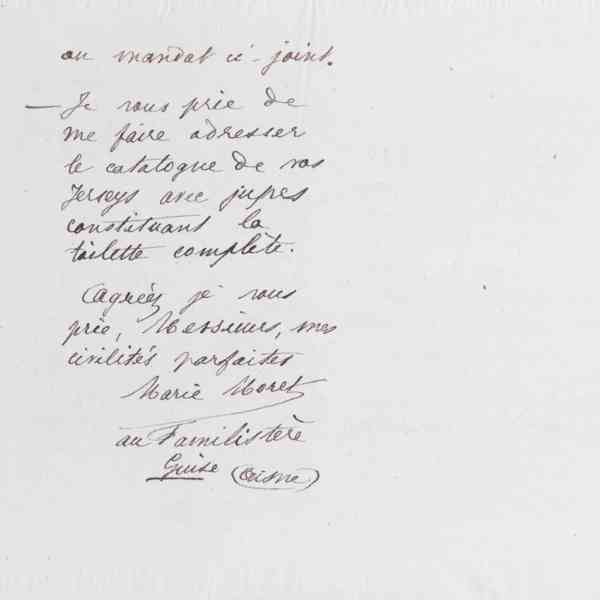 au mandat ci-joint.
— Je vous prie de
me faire adresser
le catalogue de vos
Jerseys avec jupes
constituant la
toilette complète.
Agréez je vous
prie, Messieurs, mes
civilités parfaites
Marie Moret
au Familistère
Guise (Aisne)